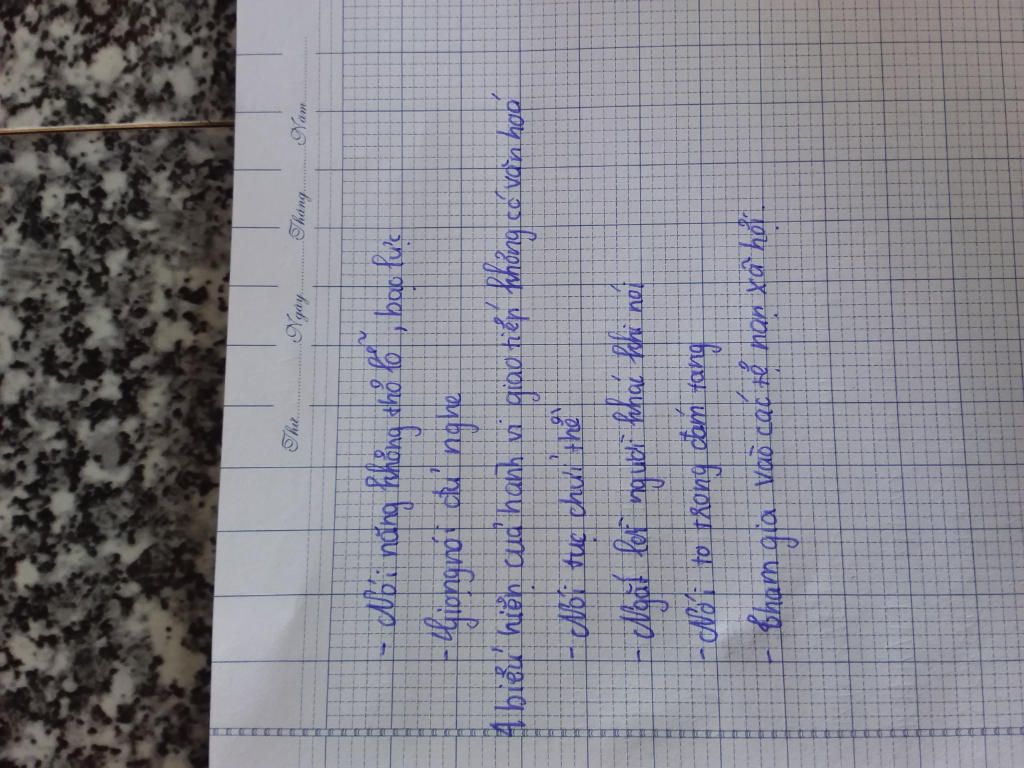 Thứ............ Ngày............ Tháng............ Năm............
- Nói năng không thô lỗ, bạo lực
- Giọng nói đủ nghe
4 biểu hiện của hành vi giao tiếp không có văn hoá
- Nói tục chửi thề
- Ngắt lời người khác khi nói
- Nói to trong đám tang
- Tham gia vào các tệ nạn xã hội.